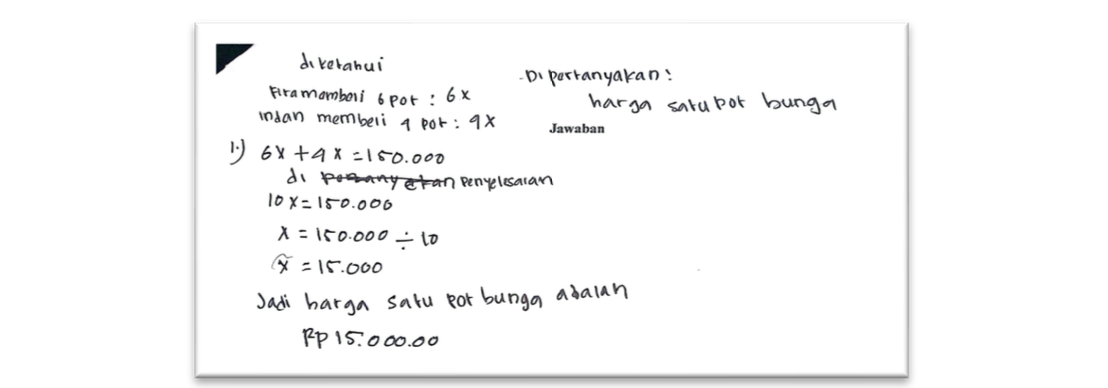 diketahui
Fira membeli 6 pot : 6x
indah membeli 4 pot : 4x
Dipertanyakan :
harga satu pot bunga
Jawaban
1.) 6x + 4x = 150.000
di penyelesaian
10x = 150.000
x = 150.000 ÷ 10
x = 15.000
Jadi harga satu pot bunga adalah
Rp 15.000.00